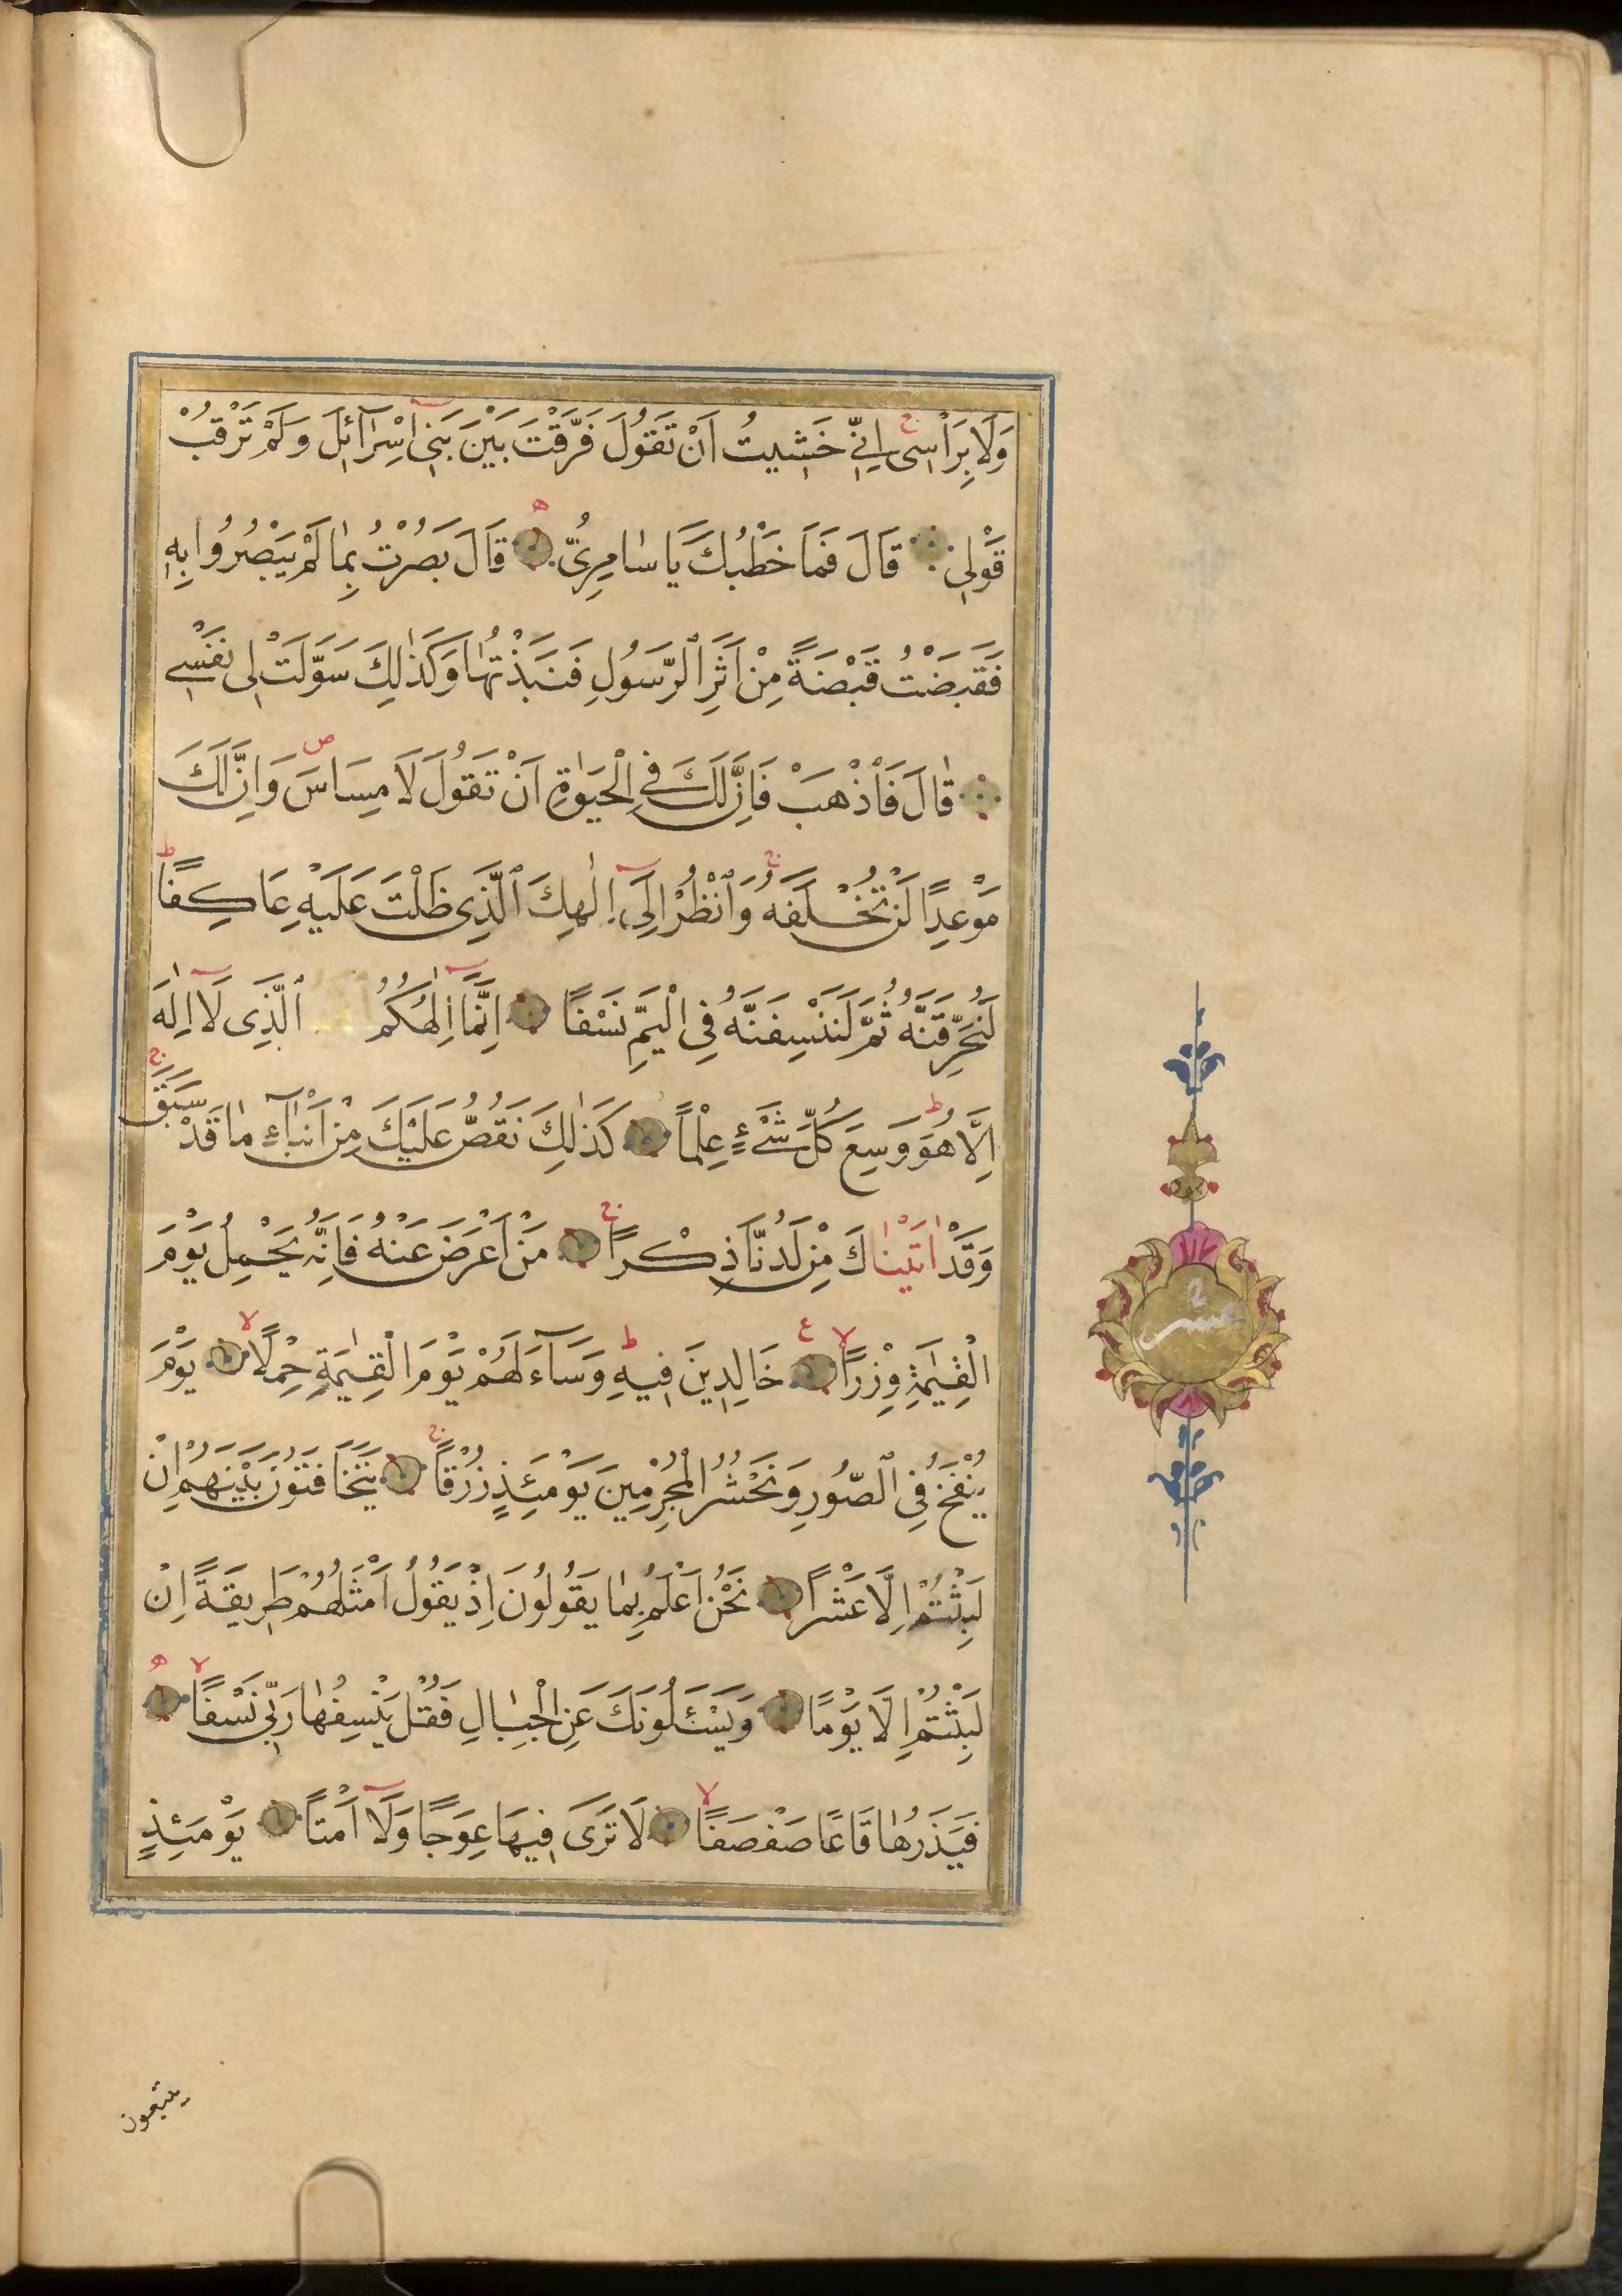 وَلَا بِرَأْسِى اِنّٖى خَشٖيتُ اَنْ تَقُولَ فَرَّقْتَ بَيْنَ بَنٖى اِسْرَآئٖلَ وَلَمْ تَرْقُبْ
قَوْلٖى قَالَ فَمَا خَطْبُكَ يَا سَامِرِىُّ قَالَ بَصُرْتُ بِمَا لَمْ يَبْصُرُوا بِهٖ
فَقَبَضْتُ قَبْضَةً مِنْ اَثَرِ الرَّسُولِ فَنَبَذْتُهَا وَكَذٰلِكَ سَوَّلَتْ لٖى نَفْسٖى
قَالَ فَاذْهَبْ فَاِنَّ لَكَ فِى الْحَيٰوةِ اَنْ تَقُولَ لَا مِسَاسَ وَاِنَّ لَكَ
مَوْعِدًا لَنْ تُخْلَفَهُ وَانْظُرْ اِلٰٓى اِلٰهِكَ الَّذٖى ظَلْتَ عَلَيْهِ عَاكِفًا
لَنُحَرِّقَنَّهُ ثُمَّ لَنَنْسِفَنَّهُ فِى الْيَمِّ نَسْفًا اِنَّمَا اِلٰهُكُمُ الَّذٖى لَا اِلٰهَ
اِلَّا هُوَ وَسِعَ كُلَّ شَىْءٍ عِلْمًا كَذٰلِكَ نَقُصُّ عَلَيْكَ مِنْ اَنْبَآءِ مَا قَدْ سَبَقَ
وَقَدْ اٰتَيْنَاكَ مِنْ لَدُنَّا ذِكْرًا مَنْ اَعْرَضَ عَنْهُ فَاِنَّهُ يَحْمِلُ يَوْمَ
الْقِيٰمَةِ وِزْرًا خَالِدٖينَ فٖيهِ وَسَآءَ لَهُمْ يَوْمَ الْقِيٰمَةِ حِمْلًا يَوْمَ
يُنْفَخُ فِى الصُّورِ وَنَحْشُرُ الْمُجْرِمٖينَ يَوْمَئِذٍ زُرْقًا يَتَخَافَتُونَ بَيْنَهُمْ اِنْ
لَبِثْتُمْ اِلَّا عَشْرًا نَحْنُ اَعْلَمُ بِمَا يَقُولُونَ اِذْ يَقُولُ اَمْثَلُهُمْ طَرٖيقَةً اِنْ
لَبِثْتُمْ اِلَّا يَوْمًا وَيَسْئَلُونَكَ عَنِ الْجِبَالِ فَقُلْ يَنْسِفُهَا رَبّٖى نَسْفًا
فَيَذَرُهَا قَاعًا صَفْصَفًا لَا تَرٰى فٖيهَا عِوَجًا وَلَا اَمْتًا يَوْمَئِذٍ
عشر
يتبعون